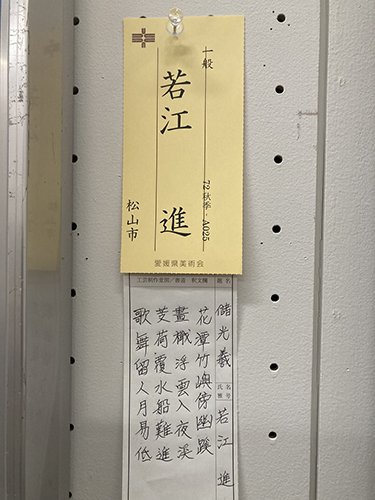 一般
72 秋季・A025
若江 進
松山市
愛媛県美術会
工芸制作意図/書道 釈文欄
題名
儲光羲
氏名
雅号
若江 進
花潭竹嶼傍幽蹊
畫檝浮雲入夜溪
芰荷覆水船難進
歌舞留人月易低